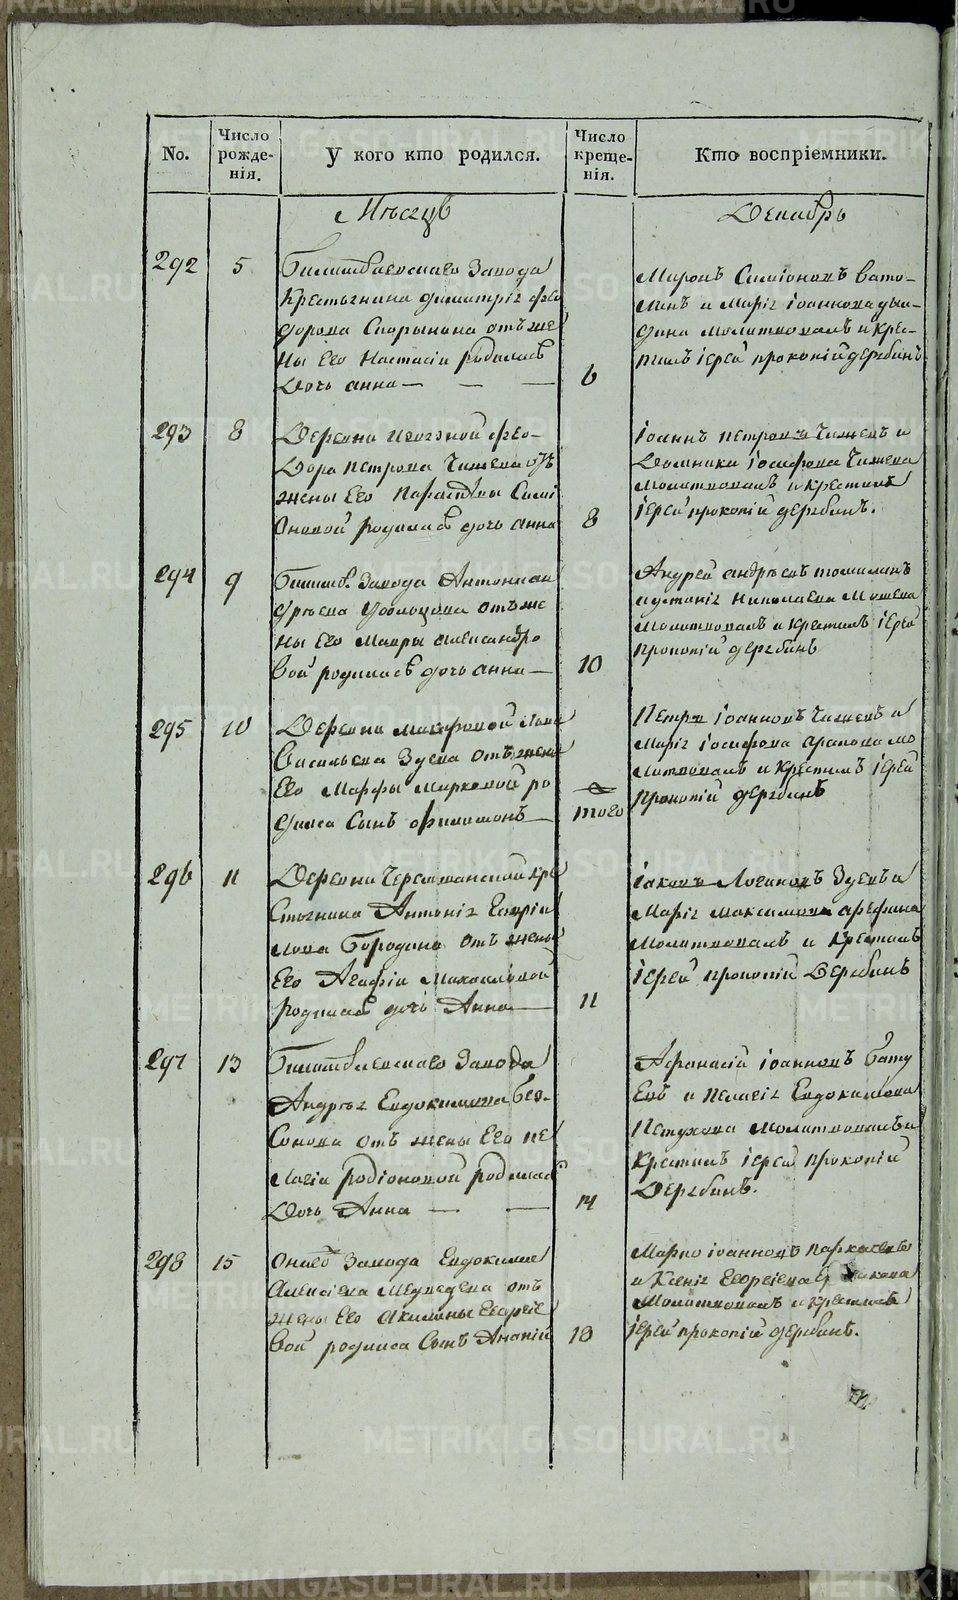 No.
Число рожде-нія.
У кого кто родился.
Число креще-нія.
Кто воспріемники.
Мѣсяцъ
Декабрь
292
5
Билимбаевскаго Завода
Крестьянина димитрія фео
дорова Спорынина отъ же
ны Его Настасіи родилась
Дочь анна — — —
6
Миронъ Симіоновъ Вато-
линъ и Марія іоаннова
дина молитвовалъ и кре-
тилъ іерей прокопій дерябинъ
293
8
Деревни фео-
Дора петрова отъ
жены Его Параскевы Симі
Оновой родилась дочь анна
8
іоаннъ петровъ и
Домника іосифова
молитвовалъ и крестилъ
іерей прокопій дерябинъ.
294
9
Билимб. Завода Антона ан
дрѣева отъ же
ны Его Мавры александро
вой родилась дочь анна —
10
Андрей андрѣевъ
и николаева
молитвовалъ и крестилъ іерей
прокопій дерябинъ
295
10
Деревни
Васильева Зуева отъ жены
Его Марфы Марковой ро
дился Сынъ филимонъ —
того
Петръ іоанновъ и
Марія іосифова мо
литвовалъ и крестилъ іерей
прокопій дерябинъ
296
11
Деревни Черемшанской кре
стьянина Антонія Гаврі
лова Бородина отъ жены
Его Агафіи Михаиловой
родилась дочь Анна —
11
іаковъ Логиновъ Зуевъ и
Марія Максимова арефина
молитвовалъ и крестилъ
іерей прокопій Дерябинъ
297
13
Билимбаевскаго Завода
Андрея Евдокимова Без-
Сонова отъ жены Его пе
лагіи родіоновой родилась
Дочь Анна — —
14
Афонасій іоанновъ Бату
Евъ и пелагія Евдокимова
Петухова молитвовалъ и
крестилъ іерей прокопій
Дерябинъ.
298
15
Онаго Завода Евдокима
Алексіева Медведева отъ
жены Его Акилины Георгіе
вой родился Сынъ Ананій
18
Марко іоанновъ
и Ксенія Георгіева
молитвовалъ и крестилъ
іерей прокопій дерябинъ.
METRIKI.GASO-URAL.RU